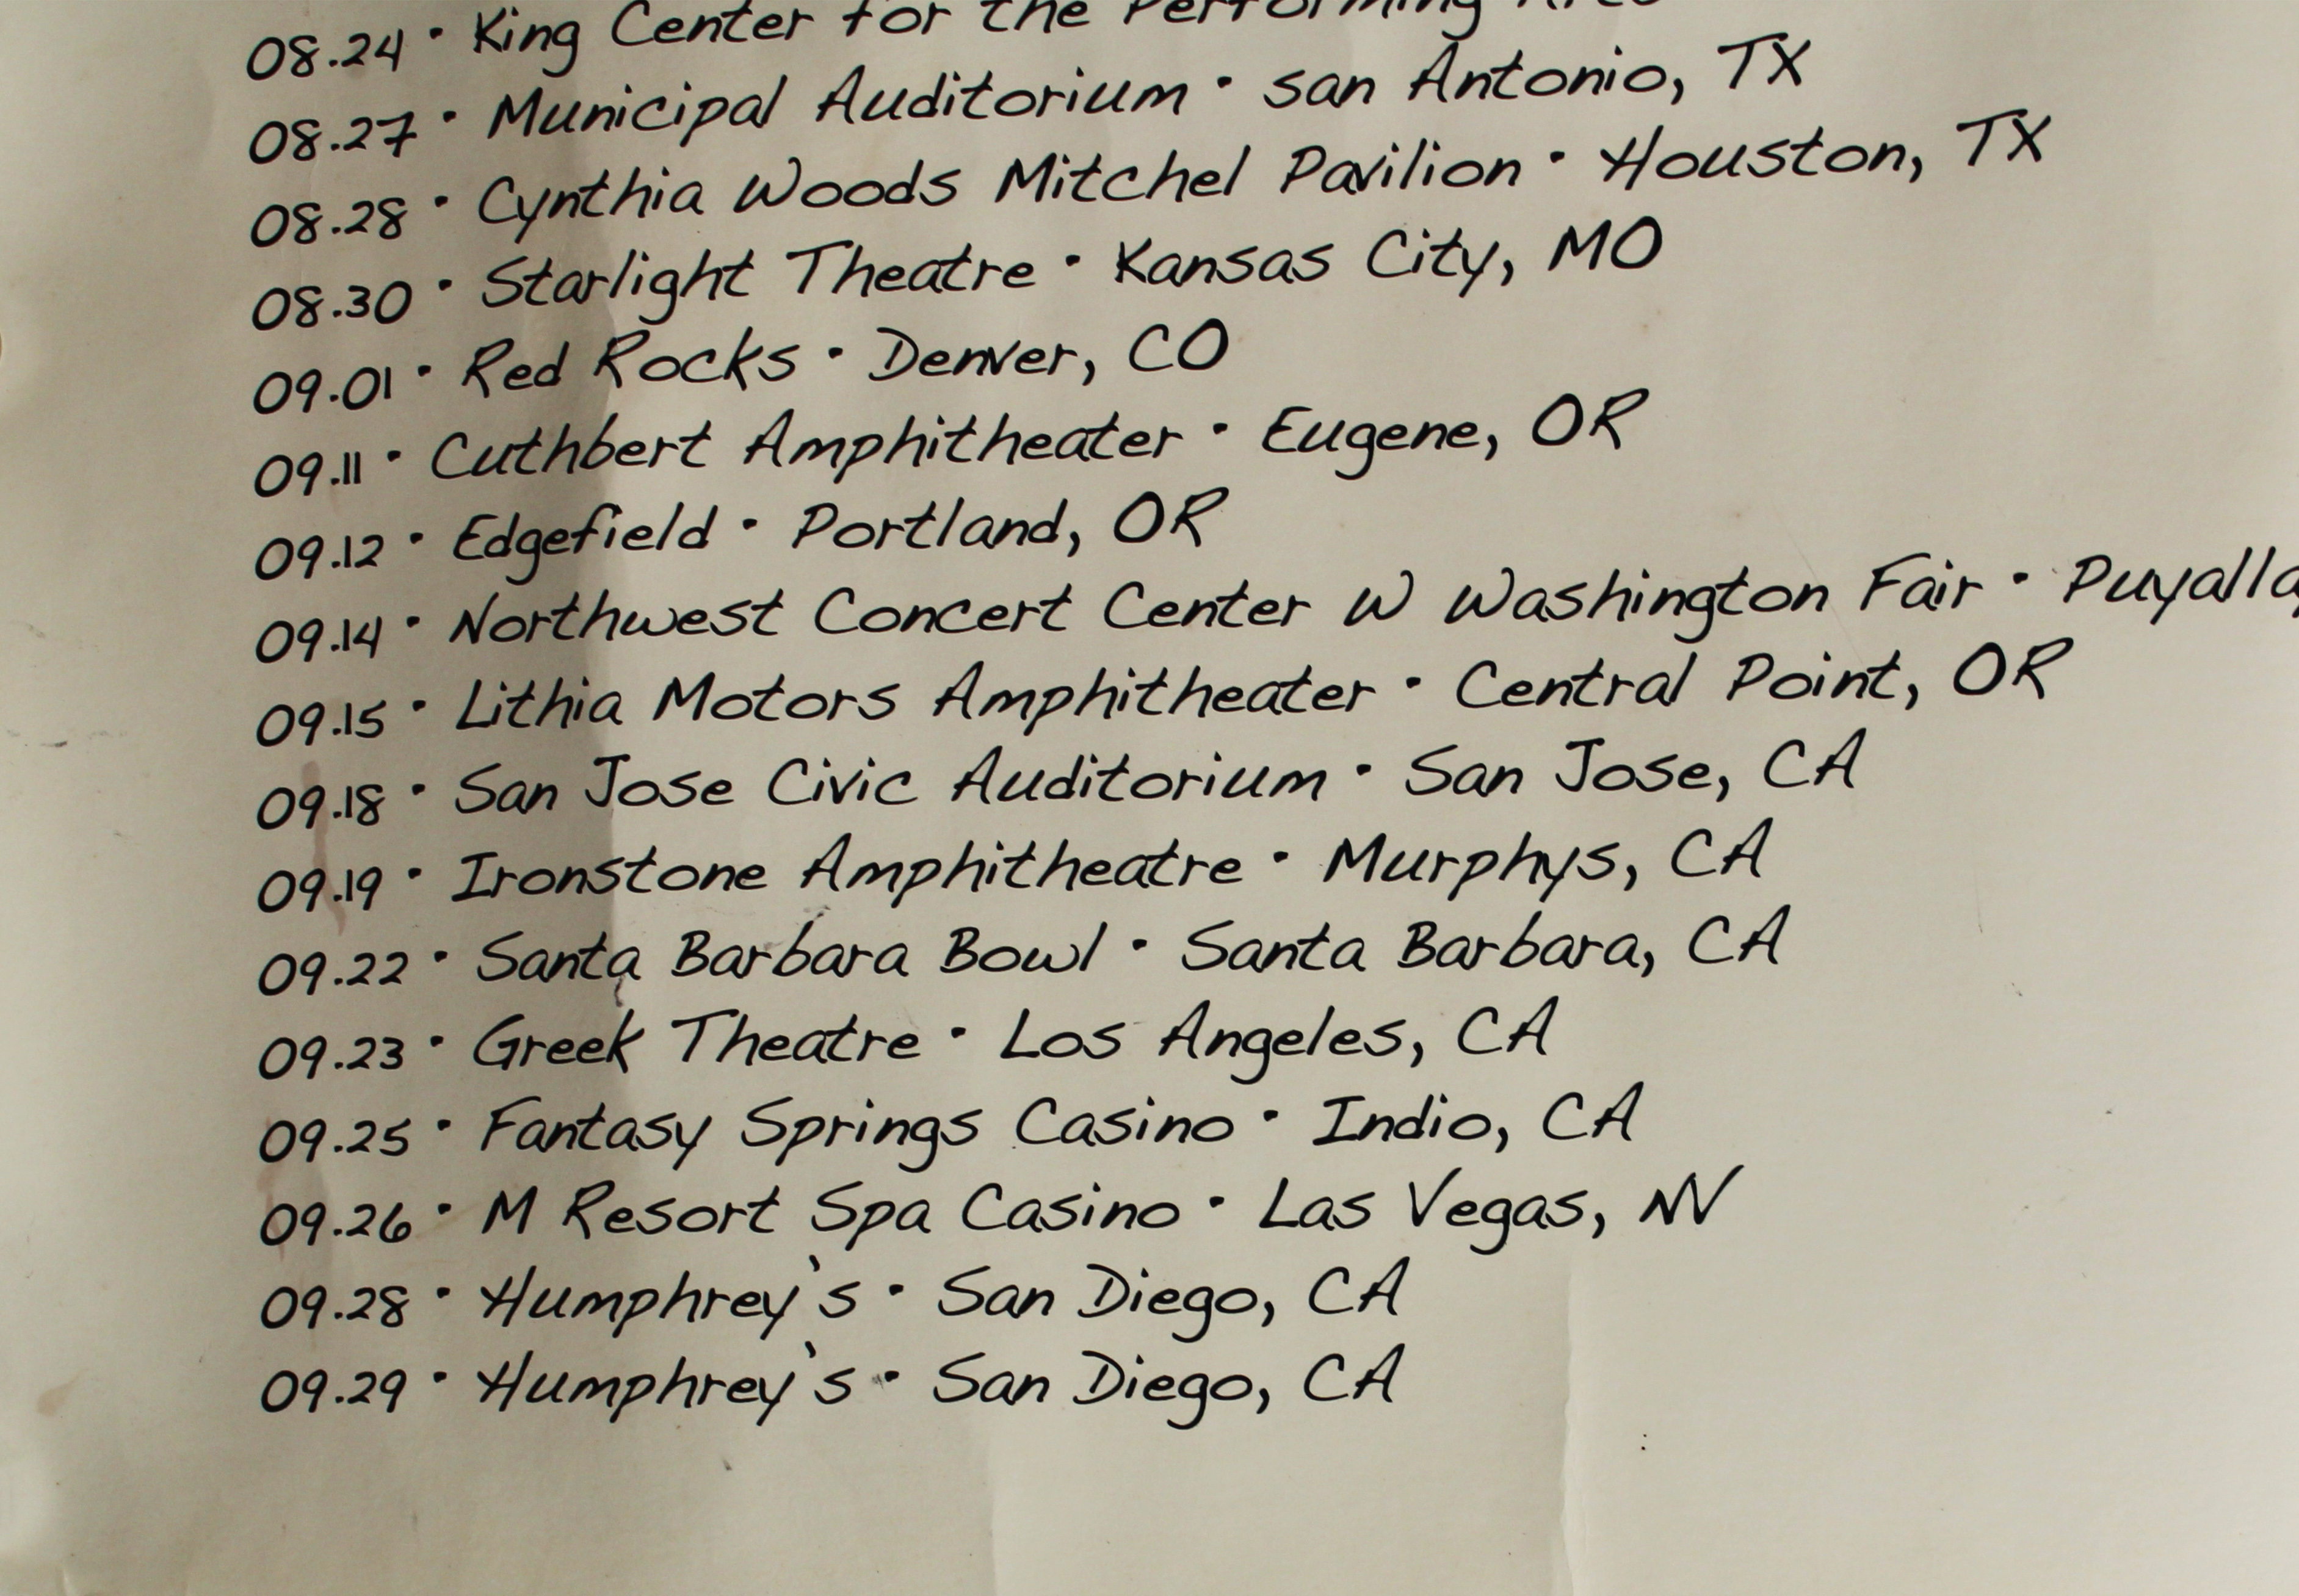 08.24 · King Center for the Performing Arts
08.27 · Municipal Auditorium · san Antonio, TX
08.28 · Cynthia Woods Mitchel Pavilion · Houston, TX
08.30 · Starlight Theatre · Kansas City, MO
09.01 · Red Rocks · Denver, CO
09.11 · Cuthbert Amphitheater · Eugene, OR
09.12 · Edgefield · Portland, OR
09.14 · Northwest Concert Center W Washington Fair · Puyalla
09.15 · Lithia Motors Amphitheater · Central Point, OR
09.18 · San Jose Civic Auditorium · San Jose, CA
09.19 · Ironstone Amphitheatre · Murphys, CA
09.22 · Santa Barbara Bowl · Santa Barbara, CA
09.23 · Greek Theatre · Los Angeles, CA
09.25 · Fantasy Springs Casino · Indio, CA
09.26 · M Resort Spa Casino · Las Vegas, NV
09.28 · Humphrey's · San Diego, CA
09.29 · Humphrey's · San Diego, CA